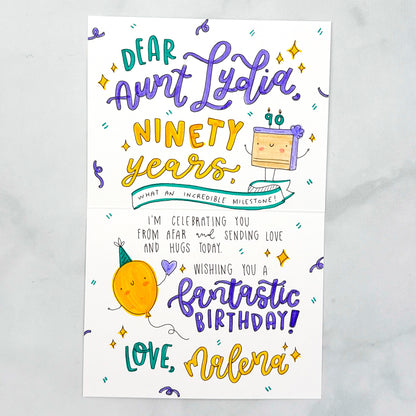 DEAR
Aunt Lydia,
90
NINETY
years,
WHAT AN INCREDIBLE MILESTONE!
I'M CELEBRATING YOU
FROM AFAR and SENDING LOVE
AND HUGS TODAY.
WISHING YOU A
fantastic
BIRTHDAY!
LOVE, Malena